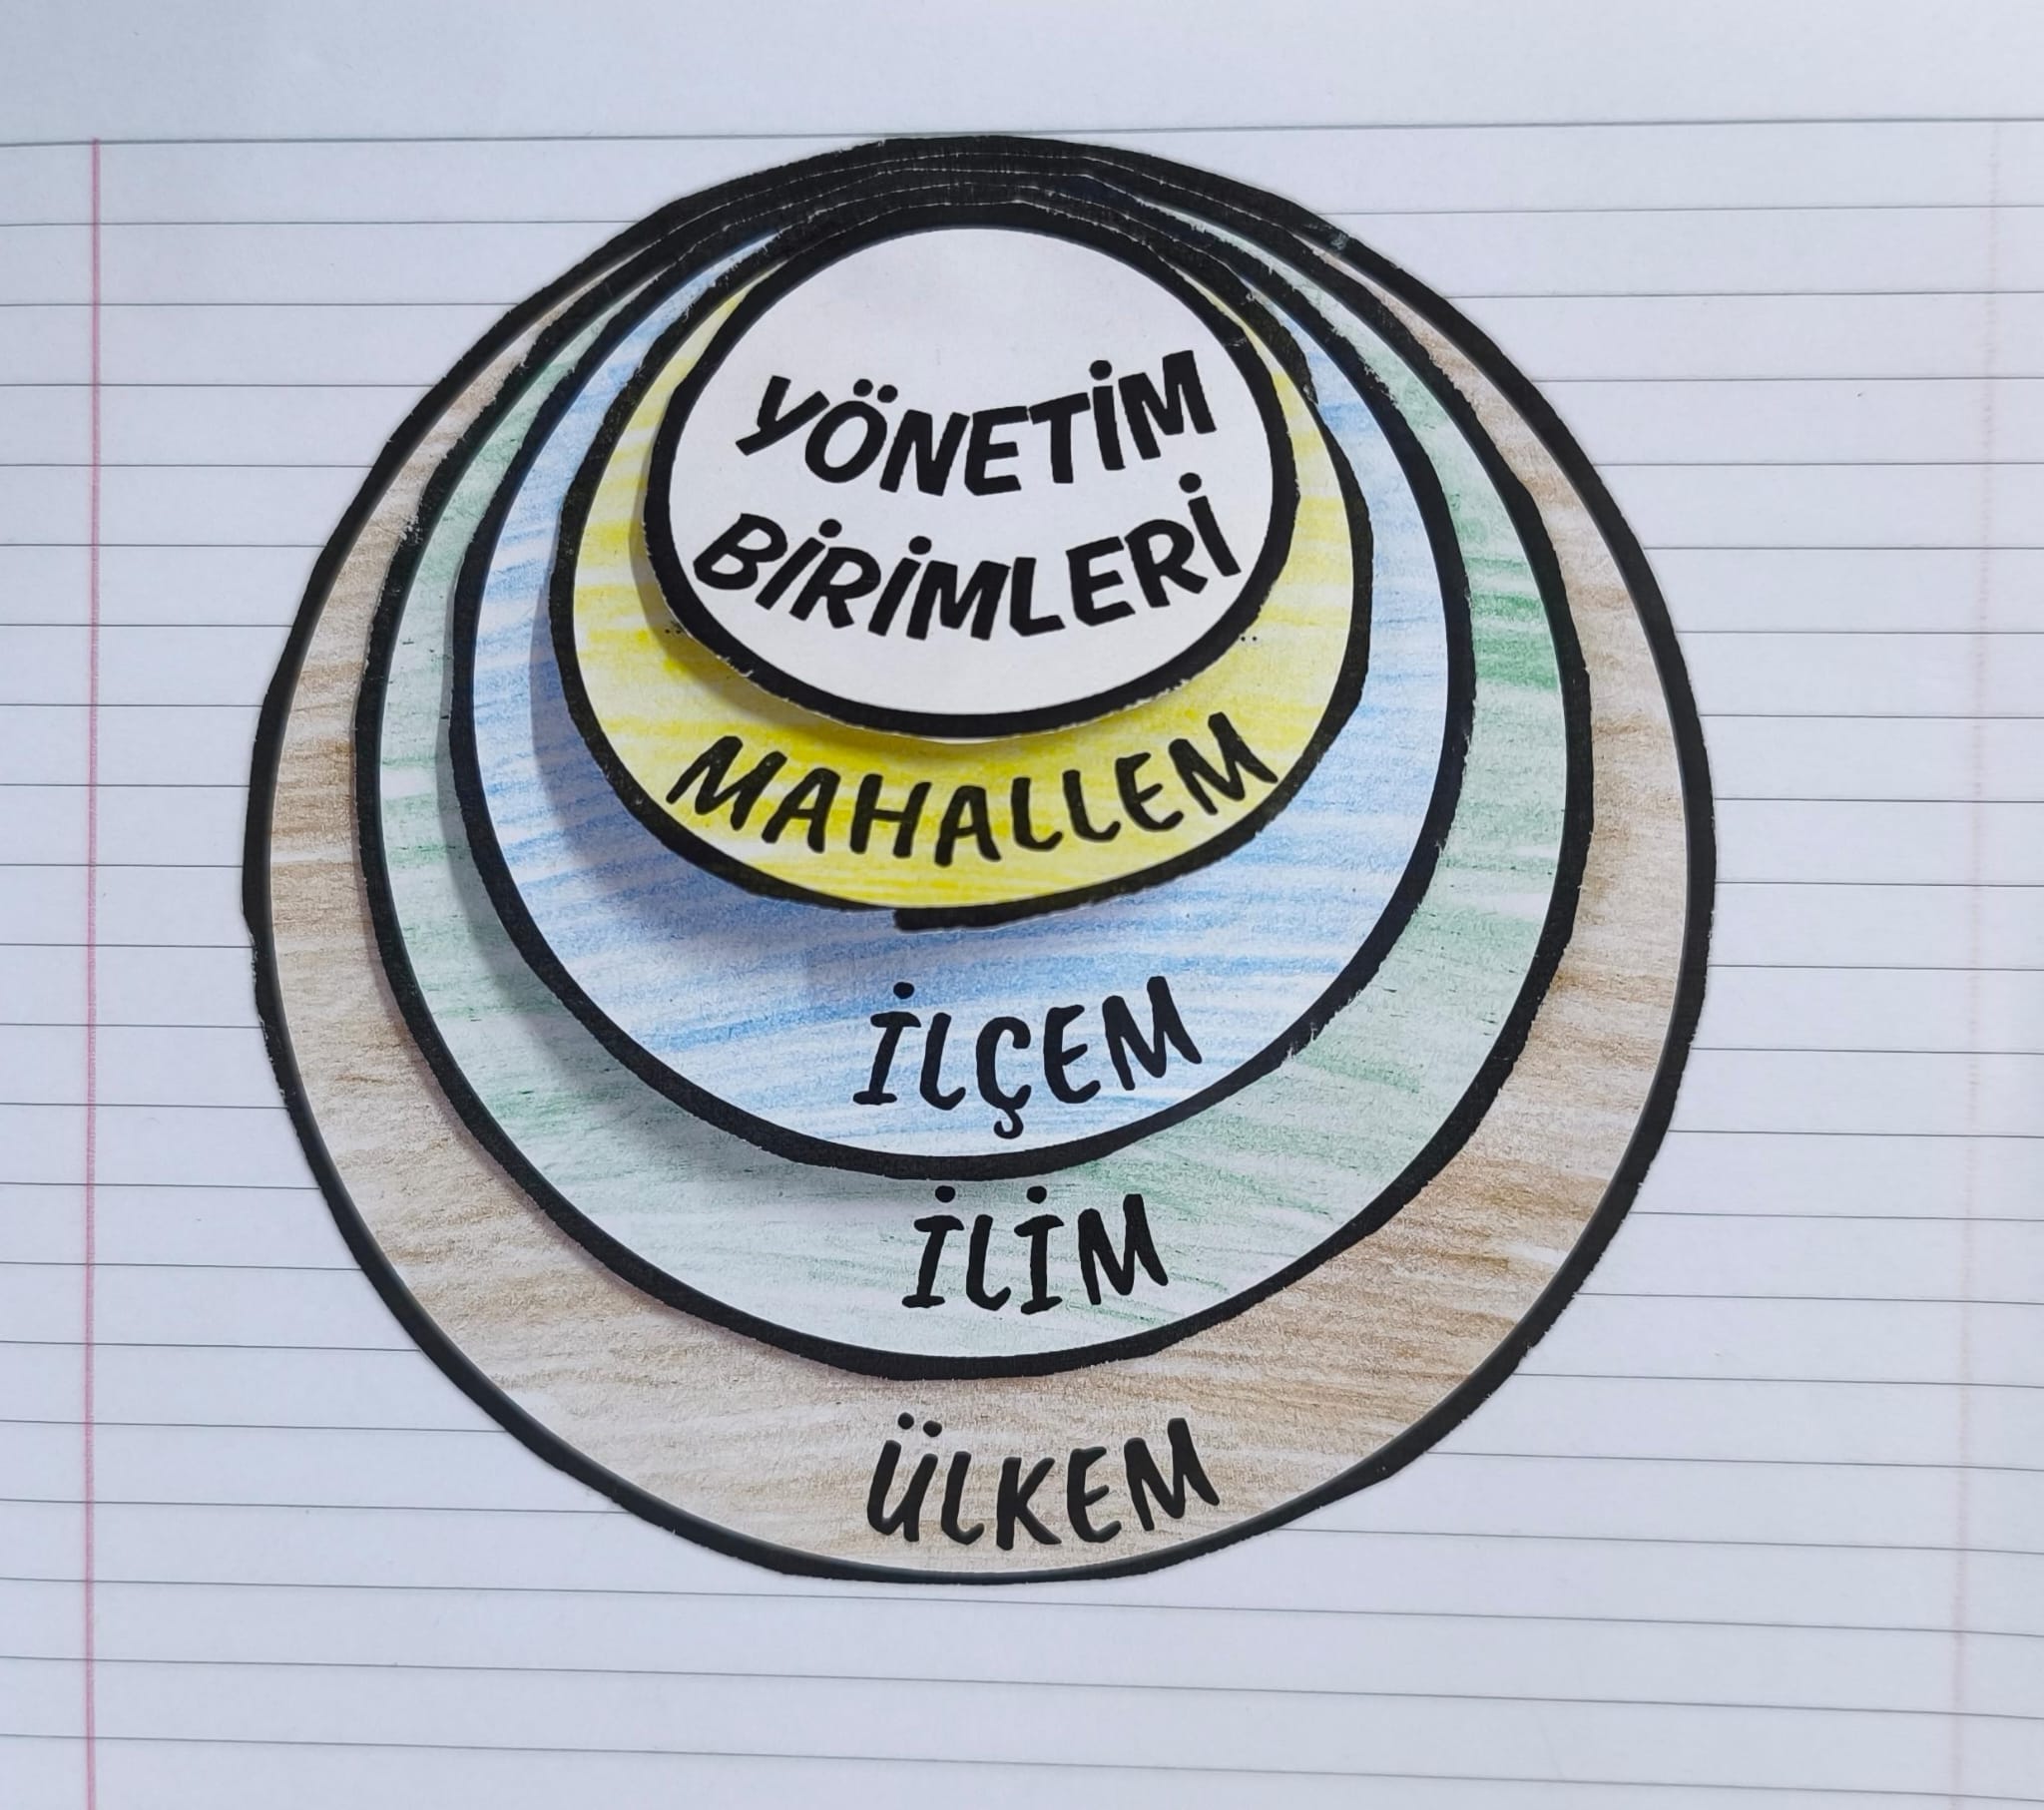 YÖNETİM
BİRİMLERİ
MAHALLEM
İLÇEM
İLİM
ÜLKEM